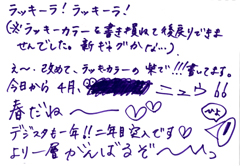 ラッキーラ!ラッキーラ!
(※ラッキーカラーを書き損ねて後戻りできま
せんでした。新ギャグかな…。)
え〜、改めて、ラッキーカラーの紫で!!!書してます。
今日から4月、ニュウ
春だね〜♡♡
デジスタも一年!!二年目突入です♡
より一層がんばるぞ〜〜っ